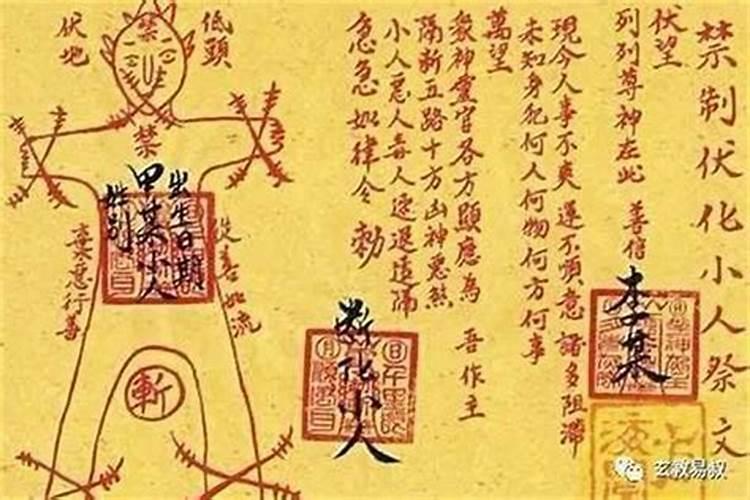 禁制伏化小人祭文
伏望
列列尊神在此 善信 李某
現今人事不爽運不順意諸多阻滯
未知身犯何人何物何方何事
萬望
眾神靈官各方顯應為 吾作主
隔斷五路十方凶神惡煞
小人惡人毒人速退遠隔
急急如律令 勅
斷化小人
低頭
伏地
禁
禁
出生日期
甲某小人
性别
從善如流
棄惡行善
斬
玄教易叔